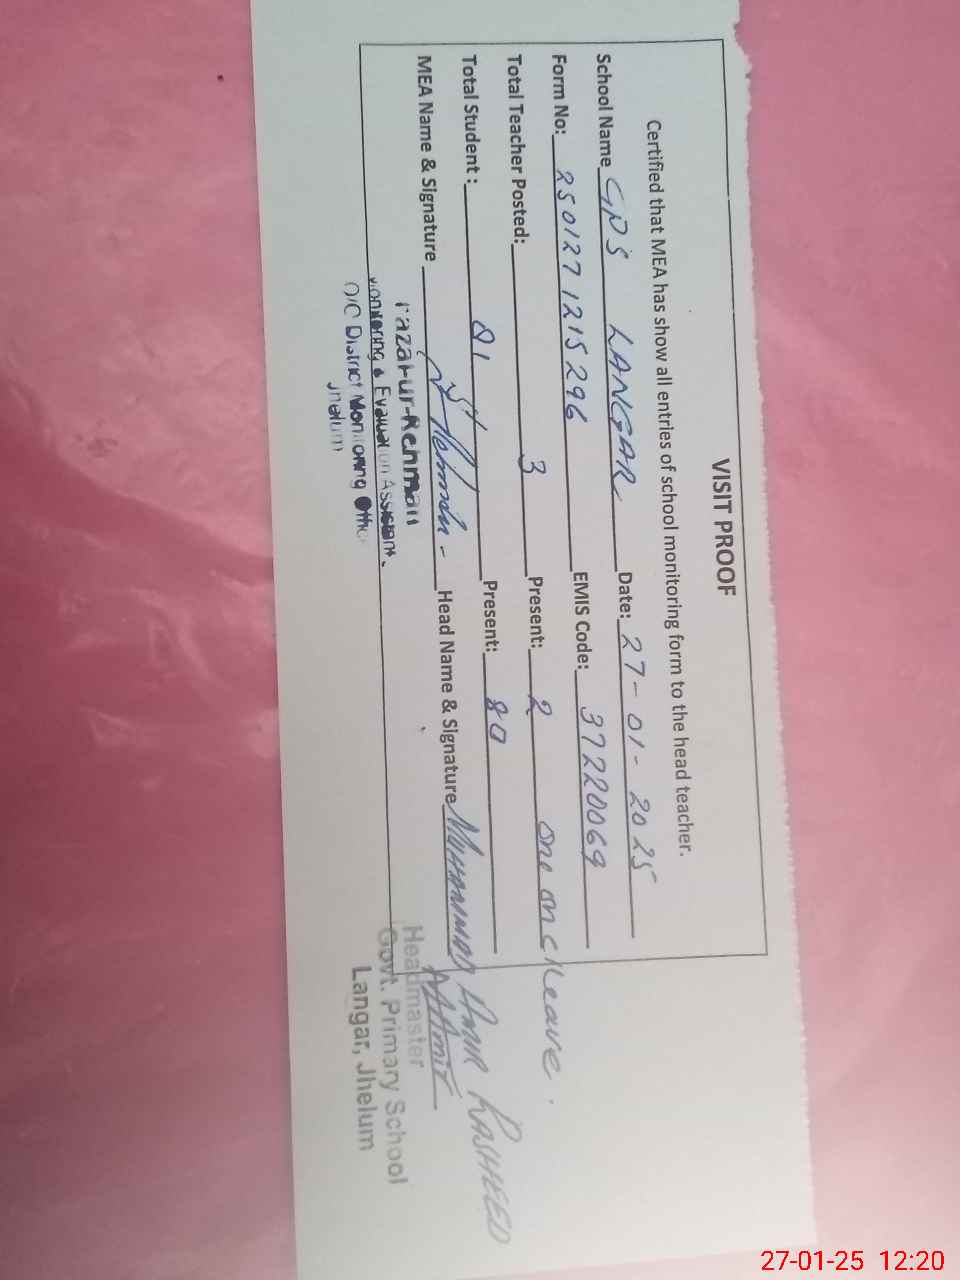 VISIT PROOF
Certified that MEA has show all entries of school monitoring form to the head teacher.
School Name GPS LANGAR Date: 27-01-2025
Form No: 250127 1215296 EMIS Code: 37220069
Total Teacher Posted: 3 Present: 2 one on Leave.
Total Student: 81 Present: 80
MEA Name & Signature Head Name & Signature MUHAMMAD RASHEED
Headmaster
Govt. Primary School
Langar, Jhelum
Fazal-ur-Rehman
Monitoring & Evaluation Assistant.
O/C District Monitoring Office
Jhelum
27-01-25 12:20